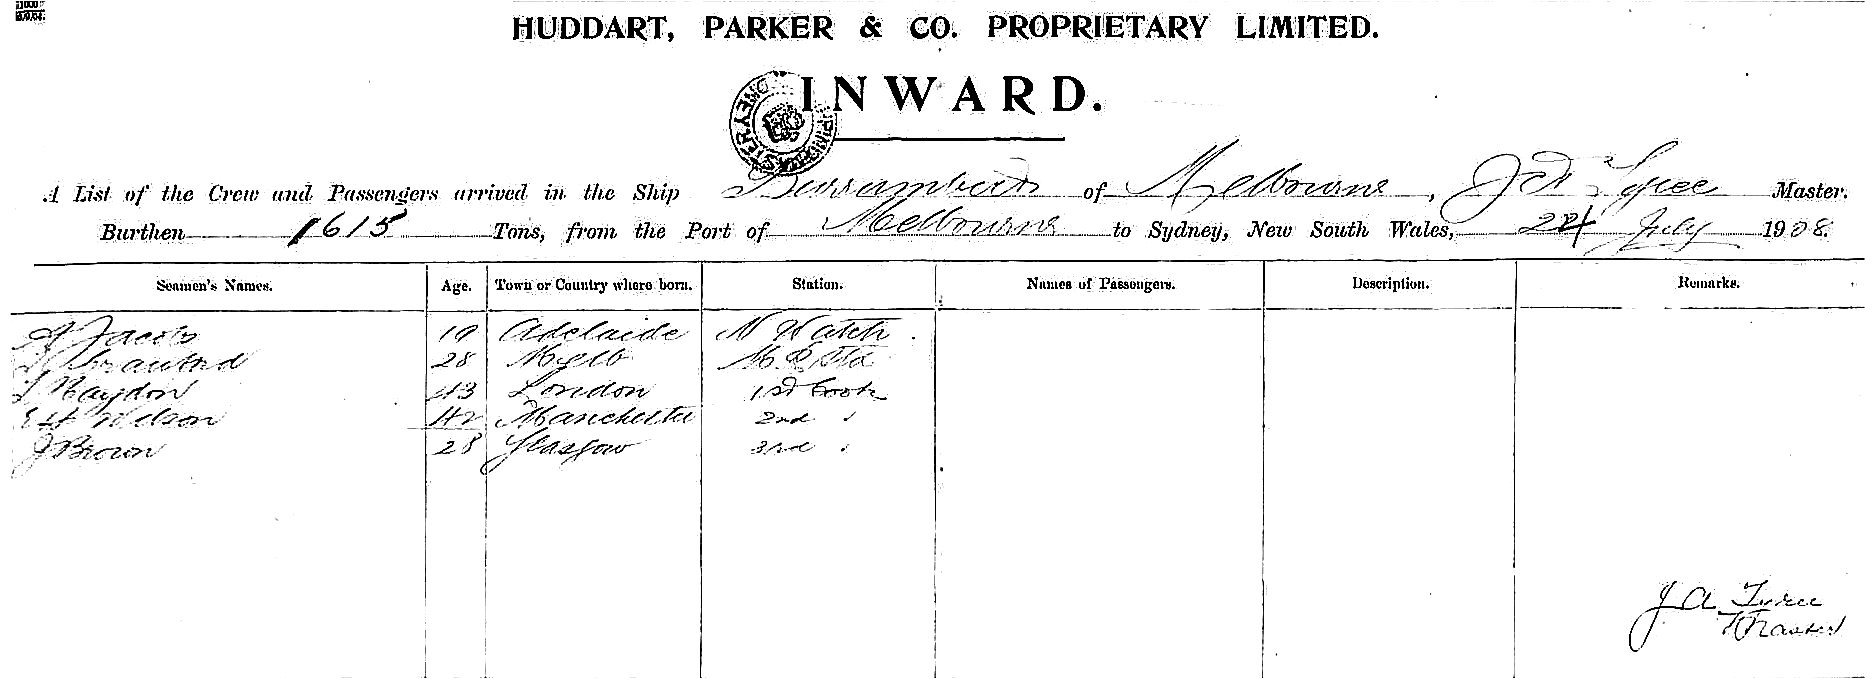 HUDDART, PARKER & CO. PROPRIETARY LIMITED.
INWARD.
A List of the Crew and Passengers arrived in the Ship Burrumbeet of Melbourne, J A Tyree Master.
Burthen 1615 Tons, from the Port of Melbourne to Sydney, New South Wales, 24 July 1908.
Seamen's Names. Age. Town or Country where born. Station. Names of Passengers. Description. Remarks.
A Jacobs 19 Adelaide N Watch
28 Melb
Haydon 43 London 1st Cook
E H Nelson 42 Manchester 2nd "
J Brown 28 Glasgow 3rd "
J A Tyree
Master